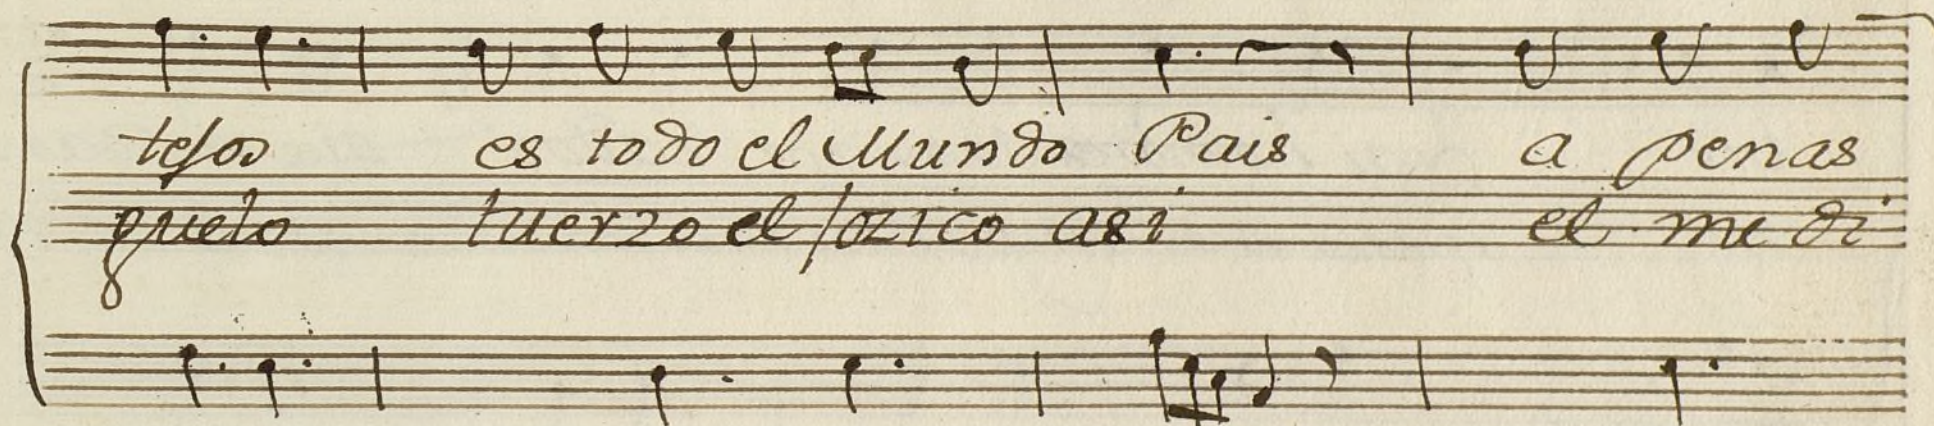 tesos es todo el Mundo Pais a penas
quelo tuerzo el fozico asi el me di